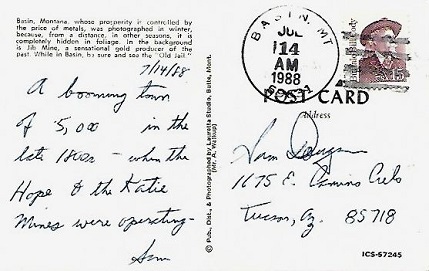 Basin, Montana, whose prosperity is controlled by
the price of metals, was photographed in winter,
because, from a distance, in other seasons, it is
completely hidden in foliage. In the background
is Jib Mine, a sensational gold producer of the
past. While in Basin, be sure and see the "Old Jail."
7/14/88
A booming town
of 5,000 in the
late 1800s - when the
Hope & the Katie
Mines were operating-
Sam
© Pub., Dist., & Photographed by Lauretta Studio, Butte, Mont.
(Mr. A. Walkup)
BASIN, MT
JUL
14
AM
1988
Buffalo Bill Cody
USA 15
POST CARD
Address
Sam
1675 E. Camino Cielo
Tucson, Az. 85718
ICS-57245